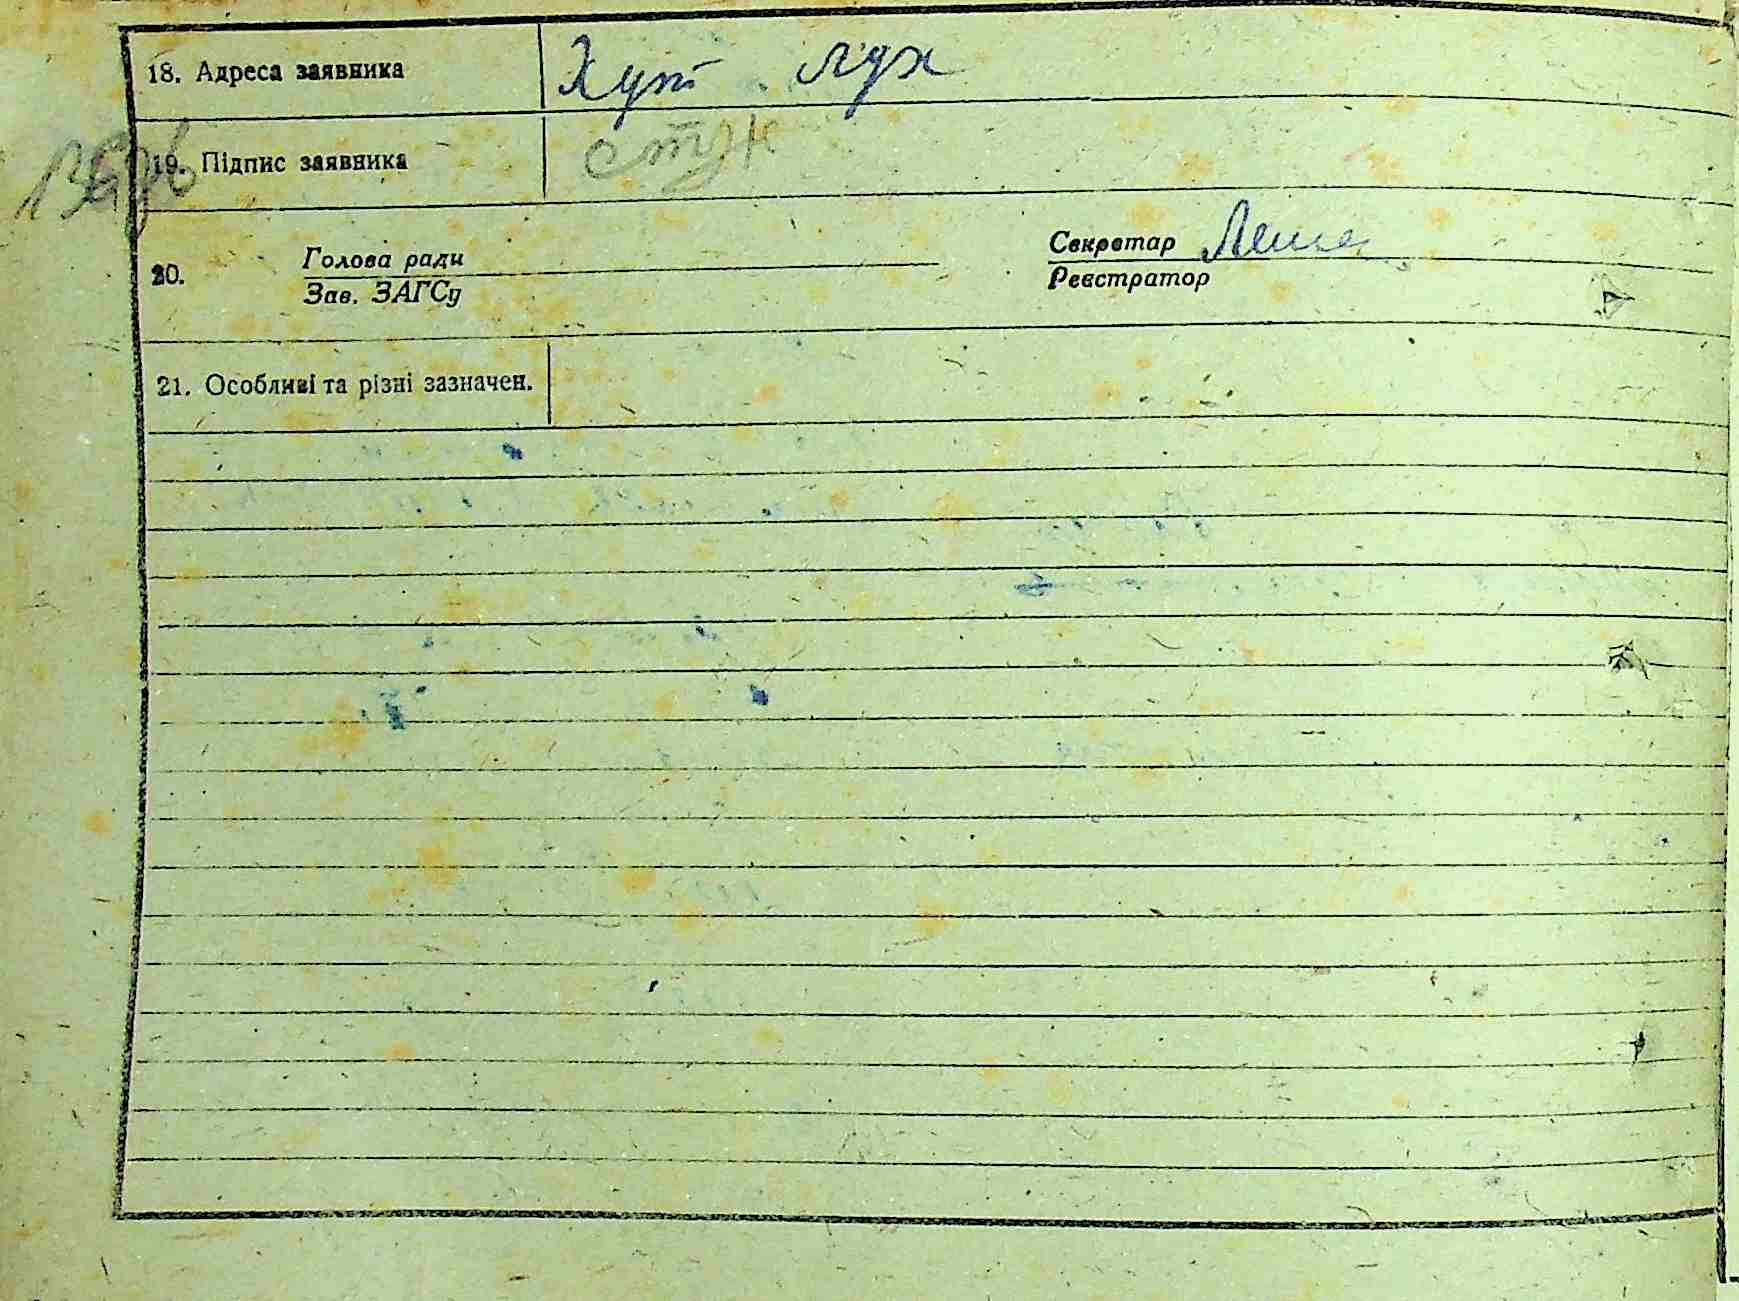 18. Адреса заявника Хут
19. Підпис заявника стук
20. Голова ради Секретар
Зав. ЗАГСу Реєстратор
21. Особливі та різні зазначен.